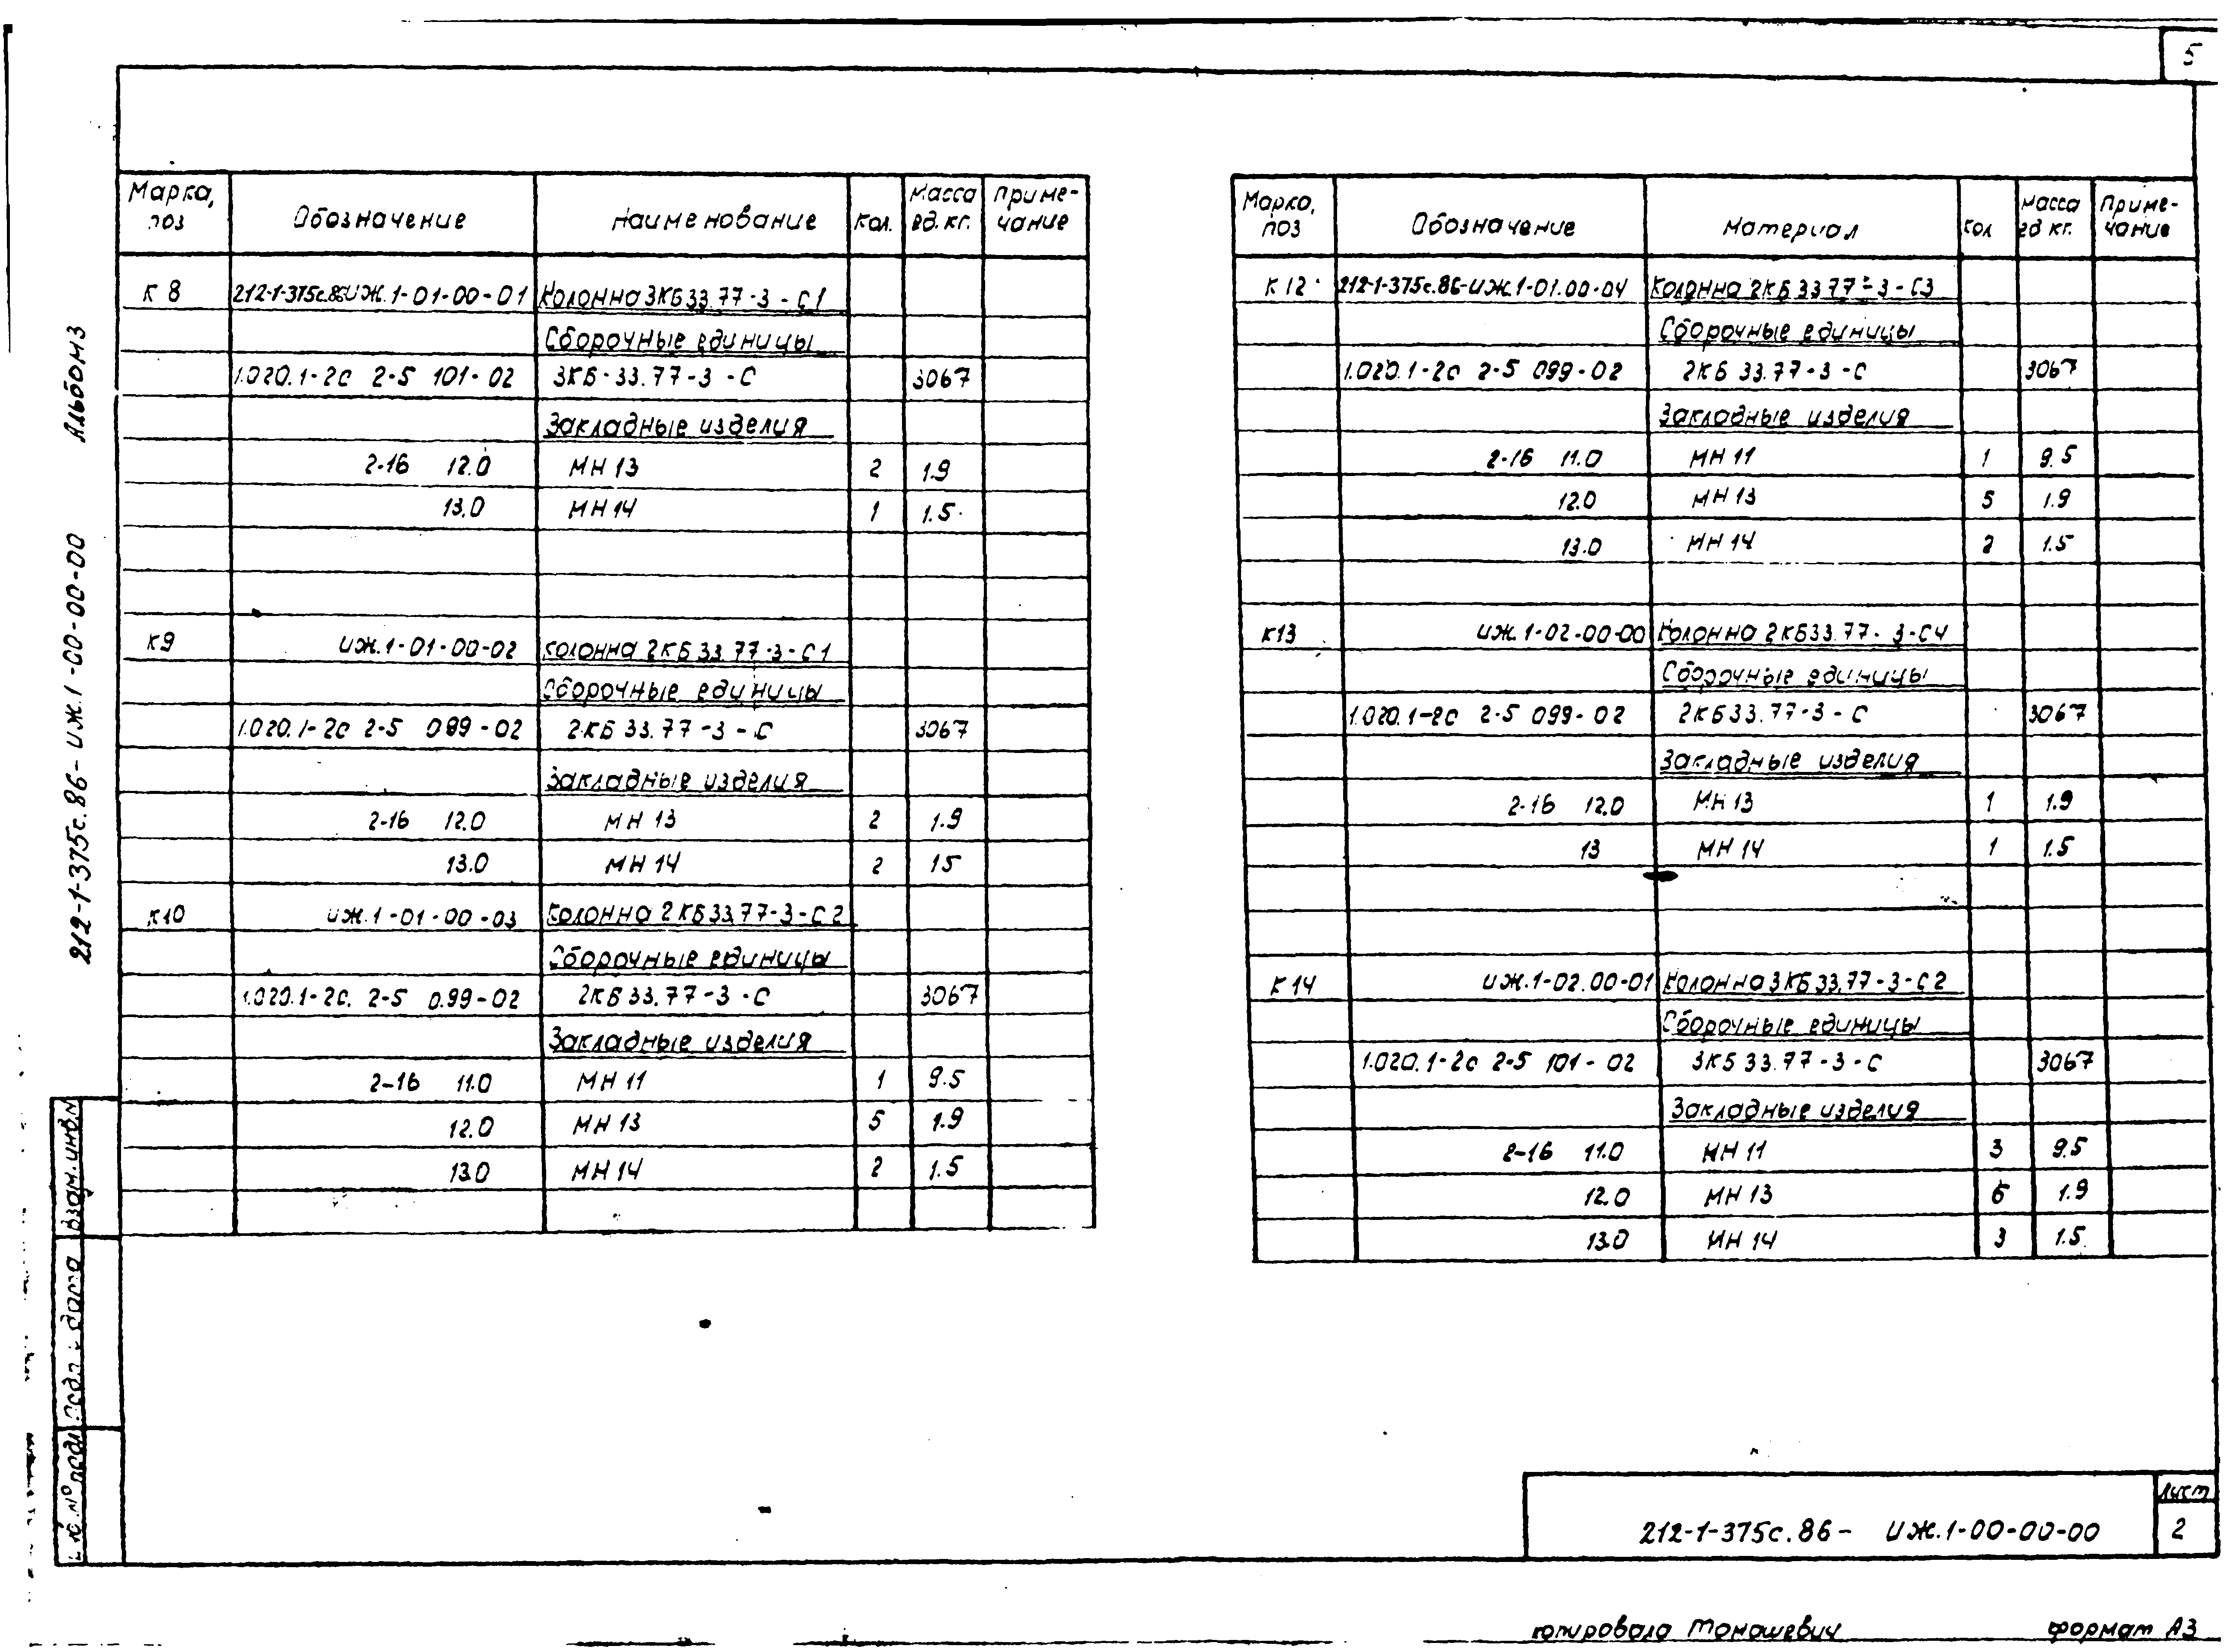 5
Альбом 3
212-1-375с.86-ИЖ.1-00-00-00
Марка, поз | Обозначение | Наименование | Кол. | Масса ед. кг. | Примечание
К 8 | 212-1-375с.86-ИЖ.1-01-00-01 | Колонна 3КБ 33.77-3-С1
Сборочные единицы
1.020.1-2с 2-5 101-02 | 3КБ-33.77-3-С | 3067
Закладные изделия
2-16 12.0 | МН 13 | 2 | 1.9
13.0 | МН 14 | 1 | 1.5
К9 | ИЖ.1-01-00-02 | Колонна 2КБ 33.77-3-С1
Сборочные единицы
1.020.1-2с 2-5 099-02 | 2КБ 33.77-3-С | 3067
Закладные изделия
2-16 12.0 | МН 13 | 2 | 1.9
13.0 | МН 14 | 2 | 15
К10 | ИЖ.1-01-00-03 | Колонна 2КБ 33.77-3-С2
Сборочные единицы
1.020.1-2с. 2-5 0.99-02 | 2КБ 33.77-3-С | 3067
Закладные изделия
2-16 11.0 | МН 11 | 1 | 9.5
12.0 | МН 13 | 5 | 1.9
13.0 | МН 14 | 2 | 1.5
Марка, поз | Обозначение | Материал | Кол | Масса ед кг. | Примечание
К 12 | 212-1-375с.86-ИЖ.1-01.00-04 | Колонна 2КБ 33 77-3-С3
Сборочные единицы
1.020.1-2с 2-5 099-02 | 2КБ 33.77-3-С | 3067
Закладные изделия
2-16 11.0 | МН 11 | 1 | 9.5
12.0 | МН 13 | 5 | 1.9
13.0 | МН 14 | 2 | 1.5
К13 | ИЖ.1-02-00-00 | Колонна 2КБ33.77-3-С4
Сборочные единицы
1.020.1-2с 2-5 099-02 | 2КБ33.77-3-С | 3067
Закладные изделия
2-16 12.0 | МН 13 | 1 | 1.9
13 | МН 14 | 1 | 1.5
К 14 | ИЖ.1-02.00-01 | Колонна 3КБ 33.77-3-С2
Сборочные единицы
1.020.1-2с 2-5 101-02 | 3КБ 33.77-3-С | 3067
Закладные изделия
2-16 11.0 | МН 11 | 3 | 9.5
12.0 | МН 13 | 6 | 1.9
13.0 | МН 14 | 3 | 1.5
Взам.инв.N
Подп. и дата
Инв. № подл
212-1-375с.86- ИЖ.1-00-00-00
Лист
2
копировала Томашевич формат А3